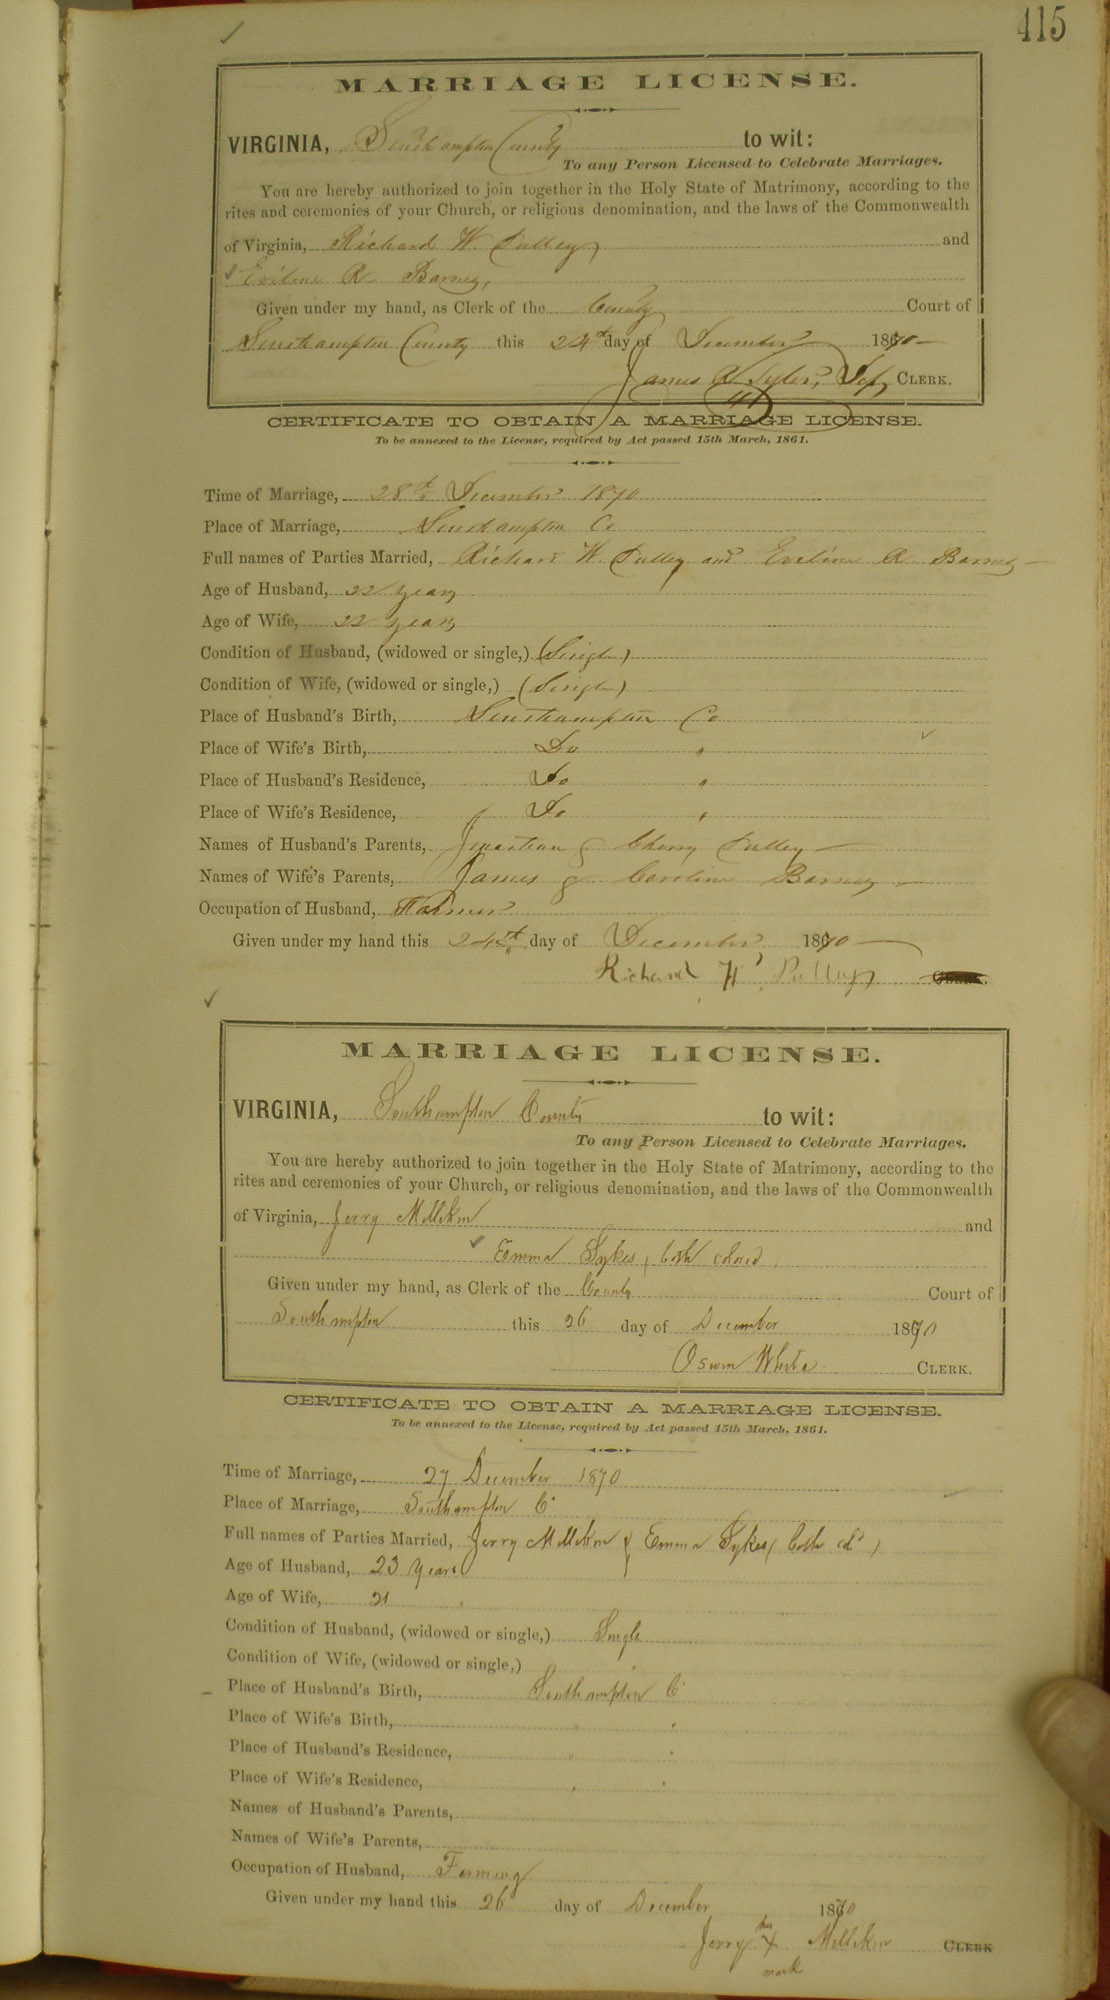 415
MARRIAGE LICENSE.
VIRGINIA, Southampton County to wit:
To any Person Licensed to Celebrate Marriages.
You are hereby authorized to join together in the Holy State of Matrimony, according to the
rites and ceremonies of your Church, or religious denomination, and the laws of the Commonwealth
of Virginia, Richard W. Pulley and
Eveline R. Barney,
Given under my hand, as Clerk of the County Court of
Southampton County this 24th day of December 1870
James R Tyler, Dep CLERK.
CERTIFICATE TO OBTAIN A MARRIAGE LICENSE.
To be annexed to the License, required by Act passed 15th March, 1861.
Time of Marriage, 28th December 1870
Place of Marriage, Southampton Co
Full names of Parties Married, Richard W. Pulley and Eveline R. Barney
Age of Husband, 22 years
Age of Wife, 22 years
Condition of Husband, (widowed or single,) (Single)
Condition of Wife, (widowed or single,) (Single)
Place of Husband's Birth, Southampton Co
Place of Wife's Birth, Do "
Place of Husband's Residence, Do "
Place of Wife's Residence, Do "
Names of Husband's Parents, Jonathan & Cherry Pulley
Names of Wife's Parents, James & Caroline Barney
Occupation of Husband, Farmer
Given under my hand this 24th day of December 1870
Richard W. Pulley
MARRIAGE LICENSE.
VIRGINIA, Southampton County to wit:
To any Person Licensed to Celebrate Marriages.
You are hereby authorized to join together in the Holy State of Matrimony, according to the
rites and ceremonies of your Church, or religious denomination, and the laws of the Commonwealth
of Virginia, Jerry Milliken and
Emma Sykes, both colored,
Given under my hand, as Clerk of the County Court of
Southampton this 26 day of December 1870
Oswin White CLERK.
CERTIFICATE TO OBTAIN A MARRIAGE LICENSE.
To be annexed to the License, required by Act passed 15th March, 1861.
Time of Marriage, 27 December 1870
Place of Marriage, Southampton C
Full names of Parties Married, Jerry Milliken & Emma Sykes (both cd)
Age of Husband, 23 Years
Age of Wife, 21 "
Condition of Husband, (widowed or single,) Single
Condition of Wife, (widowed or single,) "
Place of Husband's Birth, Southampton C
Place of Wife's Birth, " "
Place of Husband's Residence, " "
Place of Wife's Residence, " "
Names of Husband's Parents,
Names of Wife's Parents,
Occupation of Husband, Farming
Given under my hand this 26 day of December 1870
his
Jerry X Milliken CLERK
mark